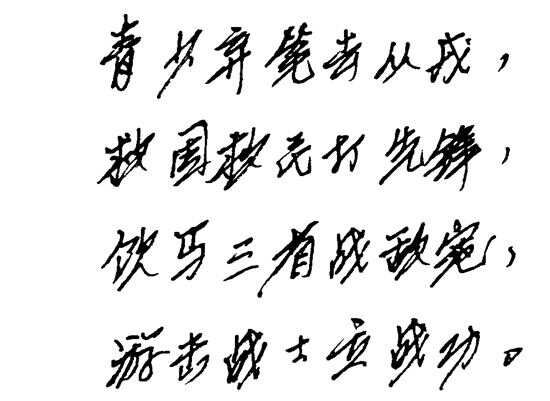 青少弃笔去从戎，
救国救民打先锋，
饮马三省战敌寇，
游击战士立战功。